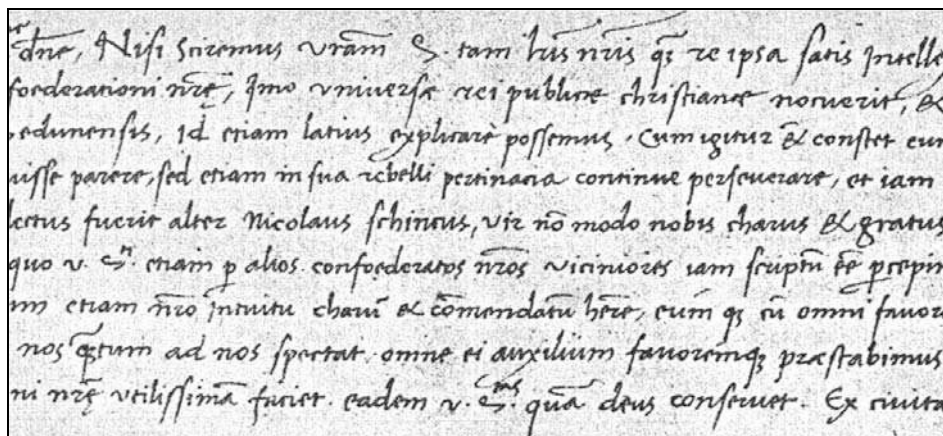 dñe, Nisi sciremus vram S. tam lris nris q̃ꝫ re ipsa satis intelle
foederationi nrę, Imo vniversæ rei publicæ christianæ nocuerit, &
edunensis, Id etiam latius explicare possemus. Cum igitur & constet eun
uisse parere, sed etiam in sua rebelli pertinacia continue perseverare, et iam
lectus fuerit alter Nicolaus schinerus, vir nõ modo nobis charus & gratus
quo v. S. etiam ꝑ alios confoederatos nr̃os viciniores iam scriptũ eẽ ꝑcepim
um etiam nr̃o intuitu charũ & cõmendatũ hẽre, eum qꝫ cũ omni favore
nos q̃ꝫtum ad nos spectat omne ei auxilium favoremqꝫ præstabimus
ni nrę vtilissimã faciet. eadem v. S. quã deus conservet. Ex civita